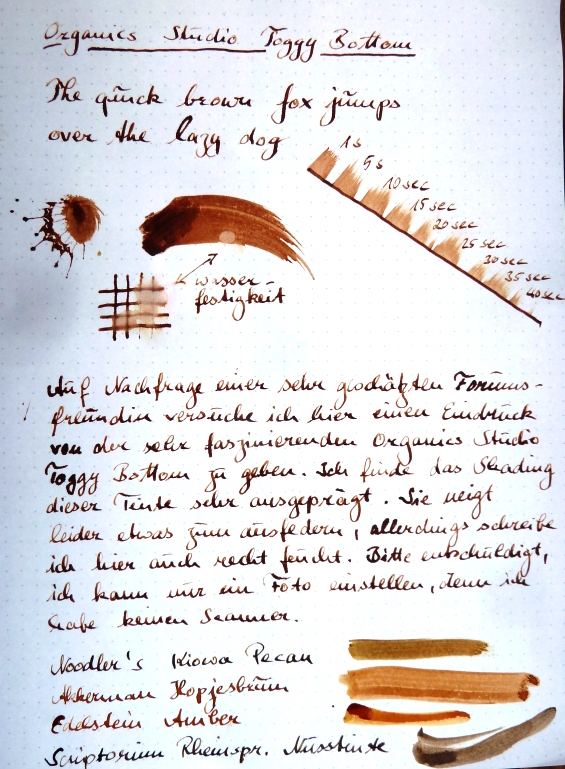 Organics Studio Foggy Bottom
The quick brown fox jumps
over the lazy dog
1s
5s
10 sec
15 sec
20 sec
25 sec
30 sec
35 sec
40 sec
wasser-
festigkeit
Auf Nachfrage einer sehr geschätzten Forums-
freundin versuche ich hier einen Eindruck
von der sehr faszinierenden Organics Studio
Foggy Bottom zu geben. Ich finde das Shading
dieser Tinte sehr ausgeprägt. Sie neigt
leider etwas zum ausfedern, allerdings schreibe
ich hier auch recht feucht. Bitte entschuldigt,
ich kann nur ein Foto einstellen, denn ich
habe keinen Scanner.
Noodler's Kiowa Pecan
Akkerman Hopjesbruin
Edelstein Amber
Scriptorium Rheinspr. Nusstinte